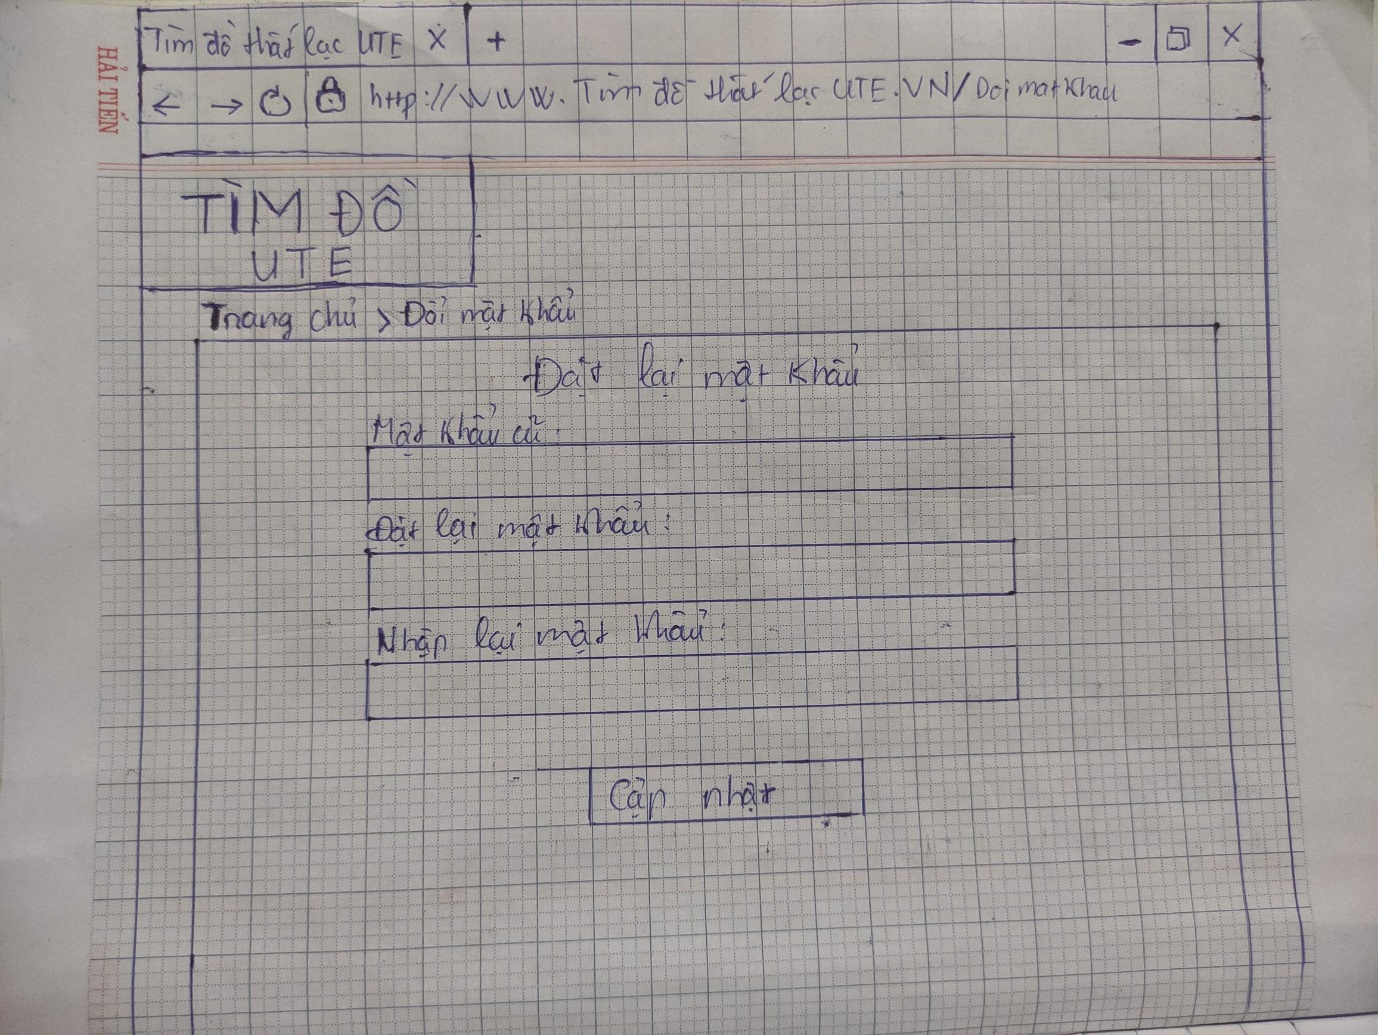 Tìm đồ thất lạc UTE X +
- X
http://www.Tìm đồ thất lạc UTE.VN/Doimatkhau
HẢI TIẾN
TÌM ĐỒ
UTE
Trang chủ > Đổi mật khẩu
Đặt lại mật khẩu
Mật khẩu cũ:
Đặt lại mật khẩu:
Nhập lại mật khẩu:
Cập nhật